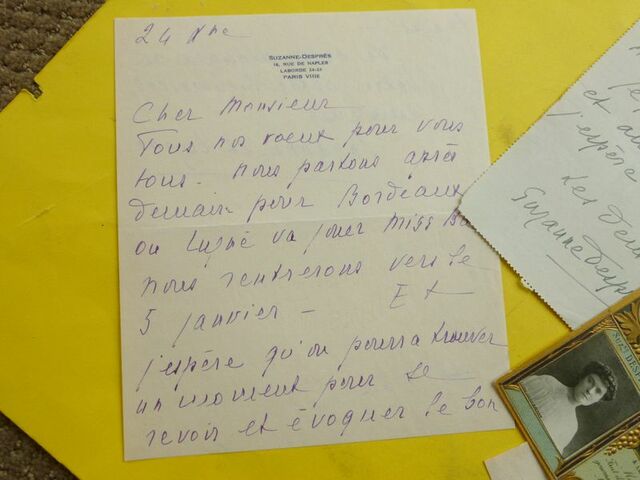 24 Xbre
SUZANNE-DESPRÈS
16, RUE DE NAPLES
LABORDE 24-24
PARIS VIIIE
Cher Monsieur
Tous nos voeux pour vous
tous. nous partons après
demain pour Bordeaux
ou Lugné va jouer Miss Ba
nous rentrerons vers le
5 janvier - Et
j'espère qu'on pourra trouver
un moment pour se
revoir et évoquer le bon
et au
j'espère
Les deux
Suzanne Desp